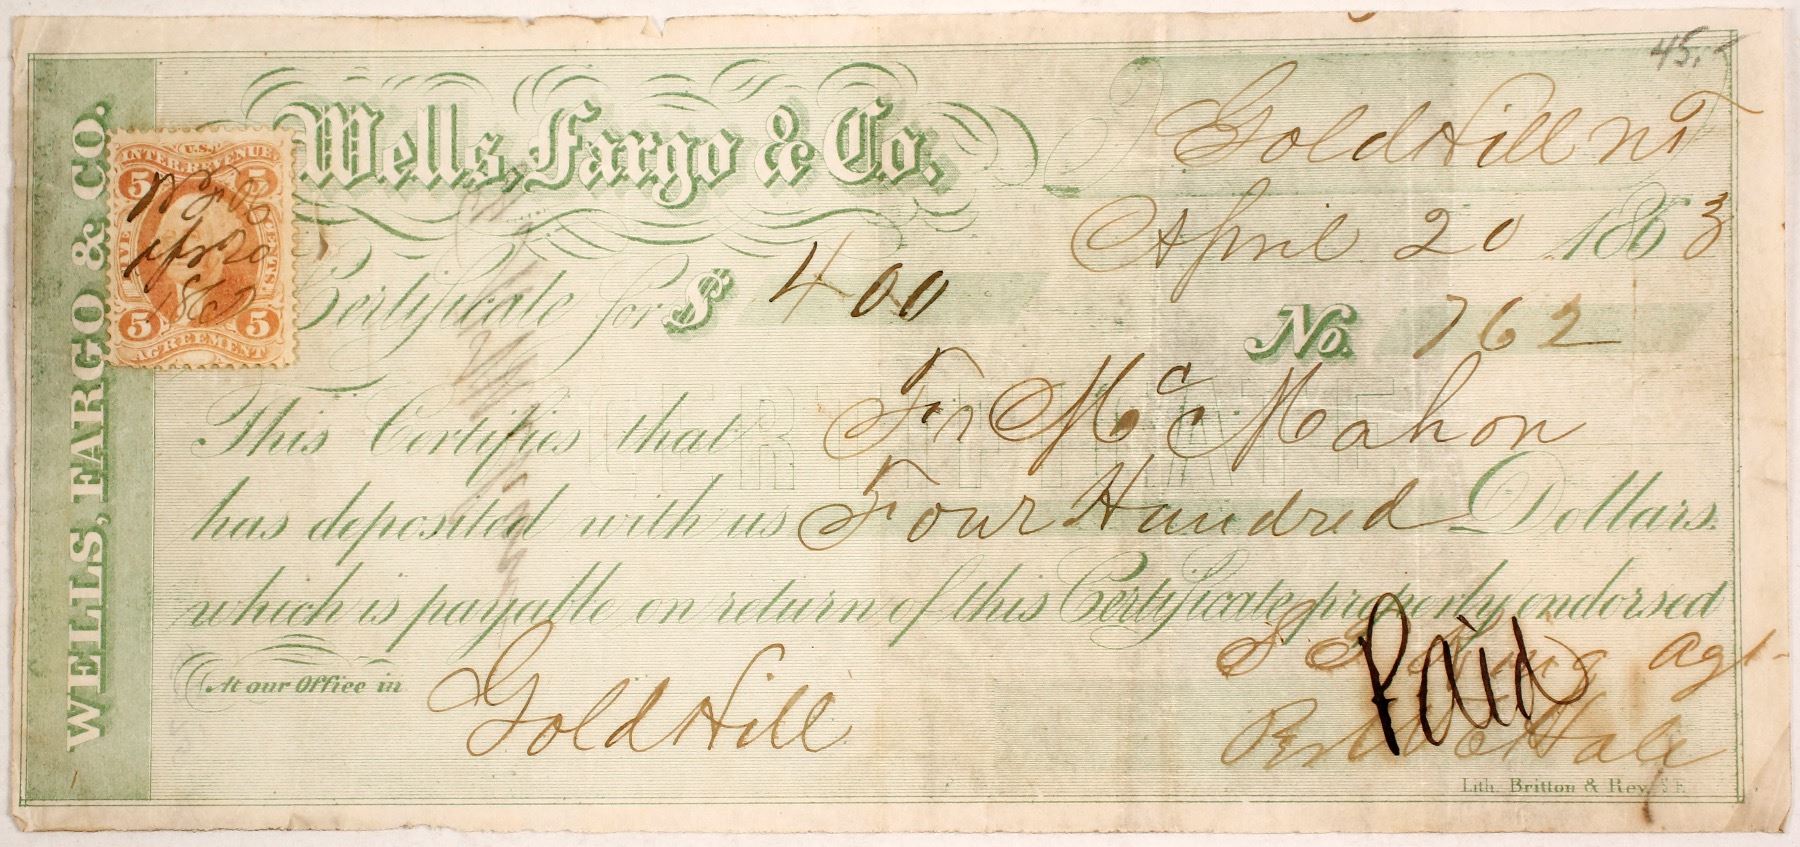 45.
WELLS, FARGO & CO.
Wells, Fargo & Co.
Gold Hill NT
April 20 1863
U.S.
INTER. REVENUE
5 5
FIVE CENTS
Apr 20
5 5
AGREEMENT
Certificate for $ 400
No. 762
CERTIFICATE
This Certifies that McMahon
has deposited with us Four Hundred Dollars.
which is payable on return of this Certificate properly endorsed
At our Office in Gold Hill
Agt.
Paid
Hale
Lith. Britton & Rey, S.F.